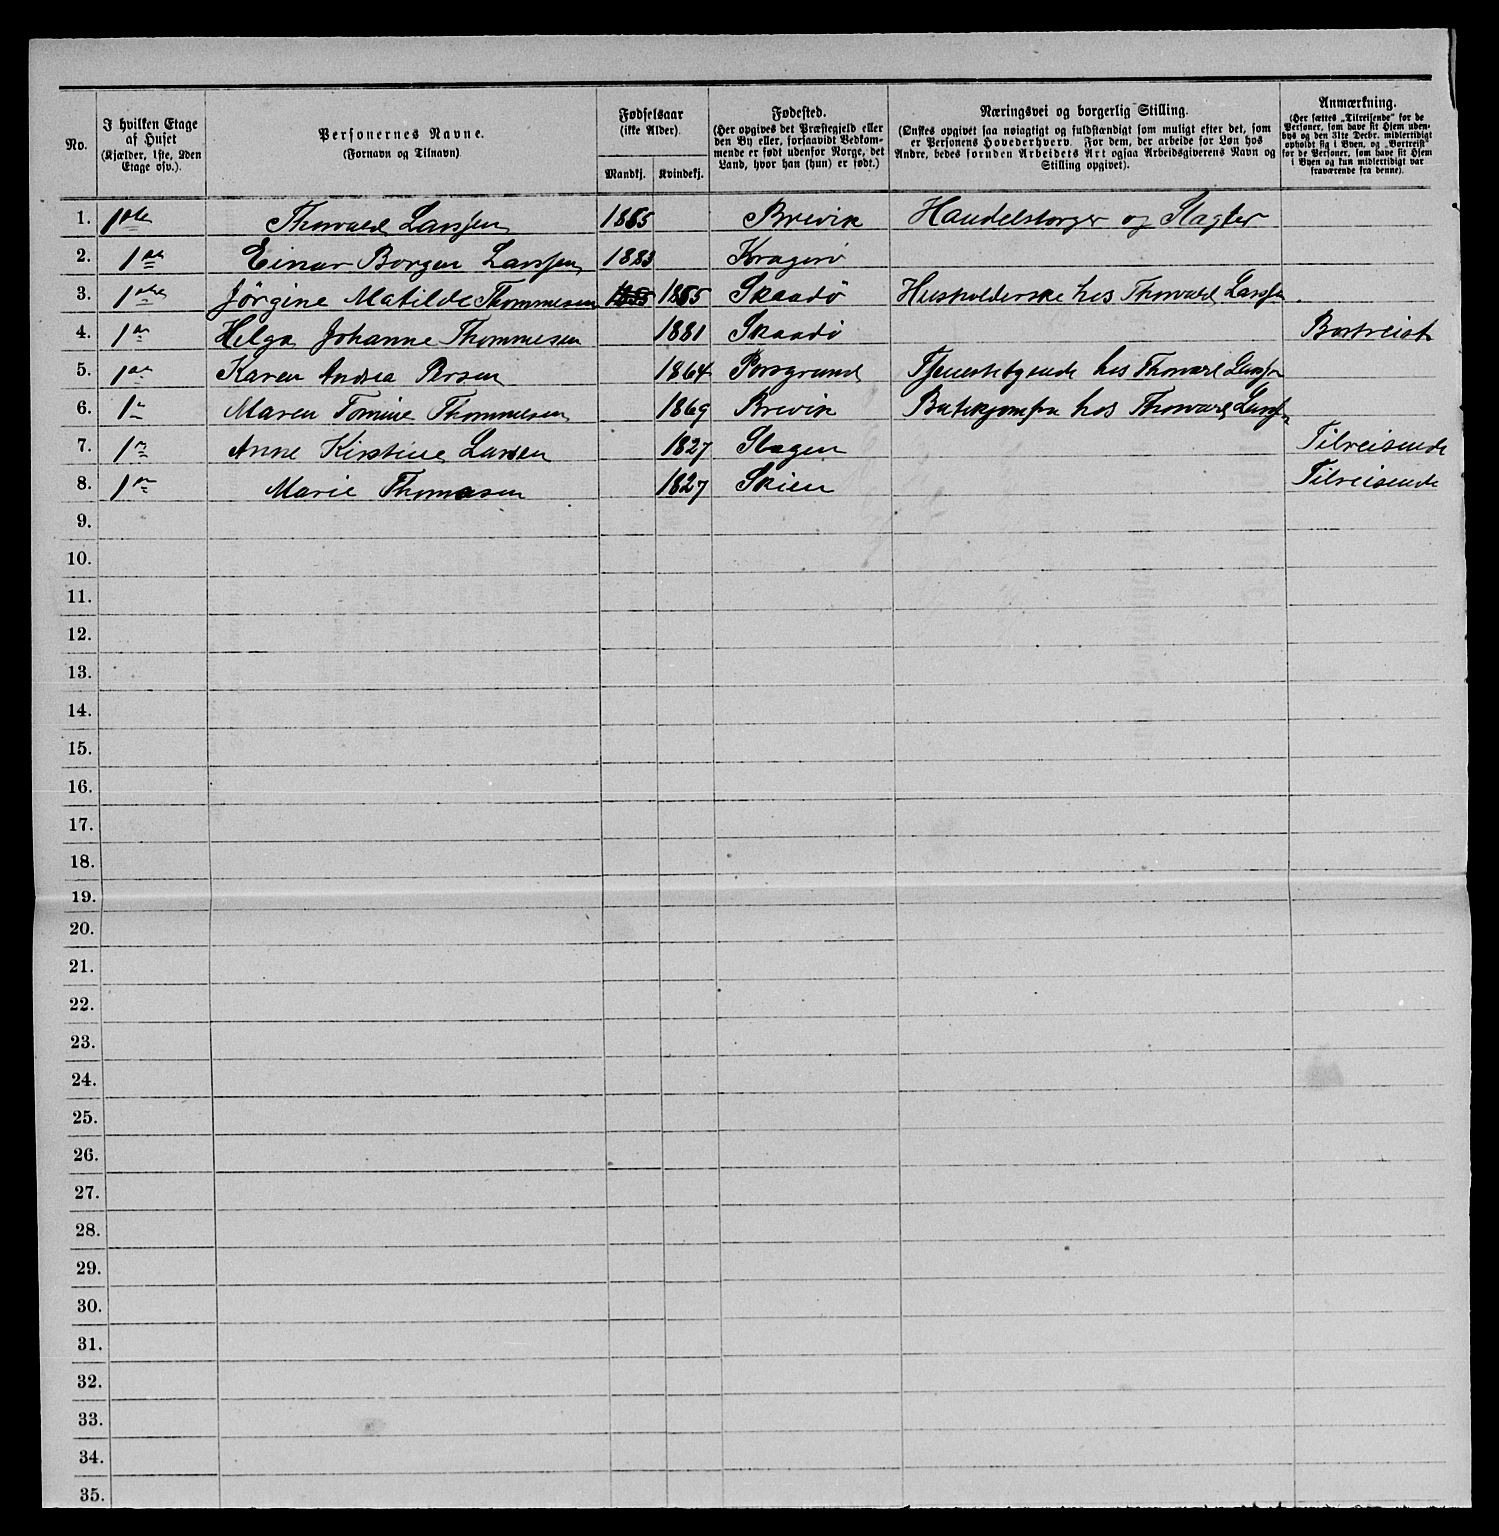 No.
I hvilken Etage af Huset (Kjælder, 1ste, 2den Etage osv.).
Personernes Navne. (Fornavn og Tilnavn)
Fødselsaar (ikke Alder).
Mandkj. Kvindekj.
Fødested. (Her opgives det Præstegjeld eller den By eller, forsaavidt Vedkommende er født udenfor Norge, det Land, hvor han (hun) er født.)
Næringsvei og borgerlig Stilling. (Ønskes opgivet saa nøiagtigt og fuldstændigt som muligt efter det, som er Personens Hovederhverv. For dem, der arbeide for Løn hos Andre, bedes foruden Arbeidets Art ogsaa Arbeidsgiverens Navn og Stilling opgivet).
Anmærkning. (Her sættes „Tilreisende" for de Personer, som have sit Hjem udenbys og den 31te Decbr. midlertidigt opholdt sig i Byen, og „Bortreist" for de Personer, som have sit Hjem i Byen og kun midlertidigt var fraværende fra denne).
1. 1ste Thorvald Larssen 1865 Brevik Handelsborger og Slagter
2. 1 Einar Borgen Larssen 1883 Kragerø
3. 1ste Jörgine Matilde Thommesen 1855 1865 Skaadö Husholderske hos Thorvald Larssen
4. 1 Helga Johanne Thommesen 1881 Skaadö Bortreist
5. 1 Karen Andrea Persen 1864 Porsgrund Tjenestetgende hos Thorvald Larssen
6. 1 Maren Tomine Thommesen 1869 Brevik Butikjomfru hos Thorvald Larssen
7. 1 Anne Kirstine Larsen 1827 Slagen Tilreisende
8. 1 Marie Thomasen 1827 Skien Tilreisende
9.
10.
11.
12.
13.
14.
15.
16.
17.
18.
19.
20.
21.
22.
23.
24.
25.
26.
27.
28.
29.
30.
31.
32.
33.
34.
35.